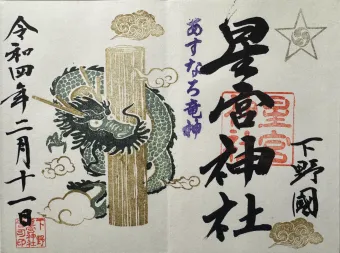 下野國
星宮神社
星宮
神社
あすなろ竜神
令和四年二月十一日
下野